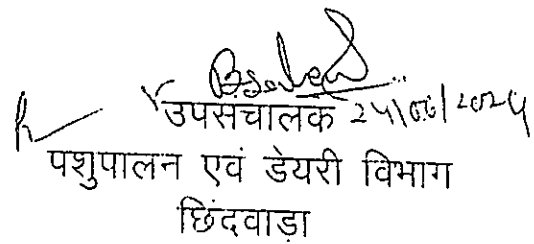 उपसंचालक 24/06/2024
पशुपालन एवं डेयरी विभाग
छिंदवाड़ा